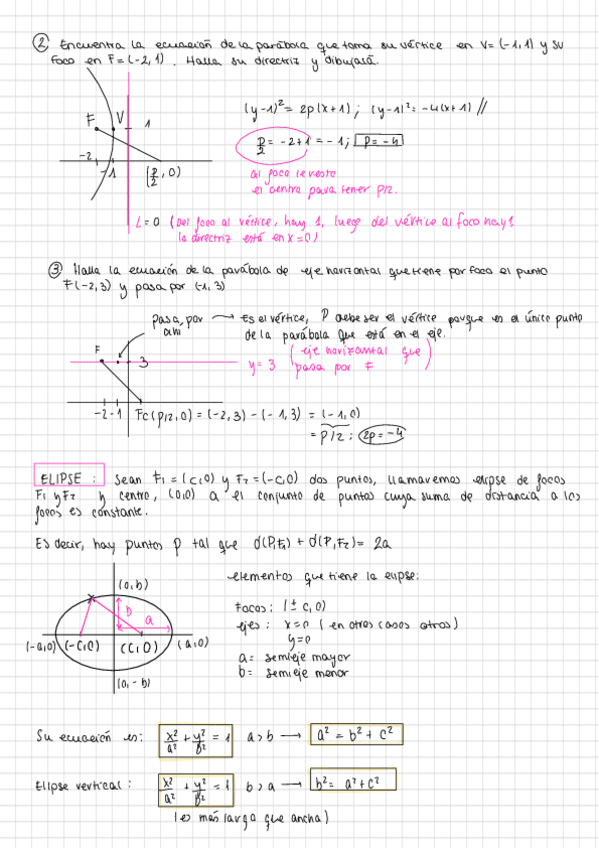 ② Encuentra la ecuación de la parábola que toma su vértice en V= (-1,1) y su
foco en F=(-2,1). Halla su directriz y dibujala.
F V 1
-2 -1 (p/2, 0)
(y-1)² = 2p(x+1); (y-1)² = -4(x+1) //
p/2 = -2+1 = -1; p = -4
al foco le resto
el centro para tener p/2.
L=0 (Del foco al vértice, hay 1, luego del vértice al foco hay 1
la directriz está en x=0)
③ Halla la ecuación de la parábola de eje horizontal que tiene por foco el punto
F(-2,3) y pasa por (-1,3)
pasa por ahí → Es el vértice, P debe ser el vértice porque es el único punto
de la parábola que está en el eje.
F 3
y=3 (eje horizontal que
pasa por F)
-2 -1 FC(p/2,0) = (-2,3) - (-1,3) = (-1,0)
= p/2; 2p=-4
ELIPSE: Sean F₁ = (c,0) y F₂ = (-c,0) dos puntos, llamaremos elipse de focos
F₁ y F₂ y centro, (0,0) a el conjunto de puntos cuya suma de distancia a los
focos es constante.
Es decir, hay puntos p tal que d(P,F₁) + d(P,F₂) = 2a
(0,b)
b
a
(-a,0) (-c,0) (c,0) (a,0)
(0,-b)
elementos que tiene la elipse:
focos: (± c,0)
ejes: x=0 (en otros casos otros)
y=0
a= semieje mayor
b= semieje menor
Su ecuación es: x²/a² + y²/b² = 1 a>b → a² = b² + c²
Elipse vertical: x²/a² + y²/b² = 1 b>a → b² = a² + c²
(es más larga que ancha)